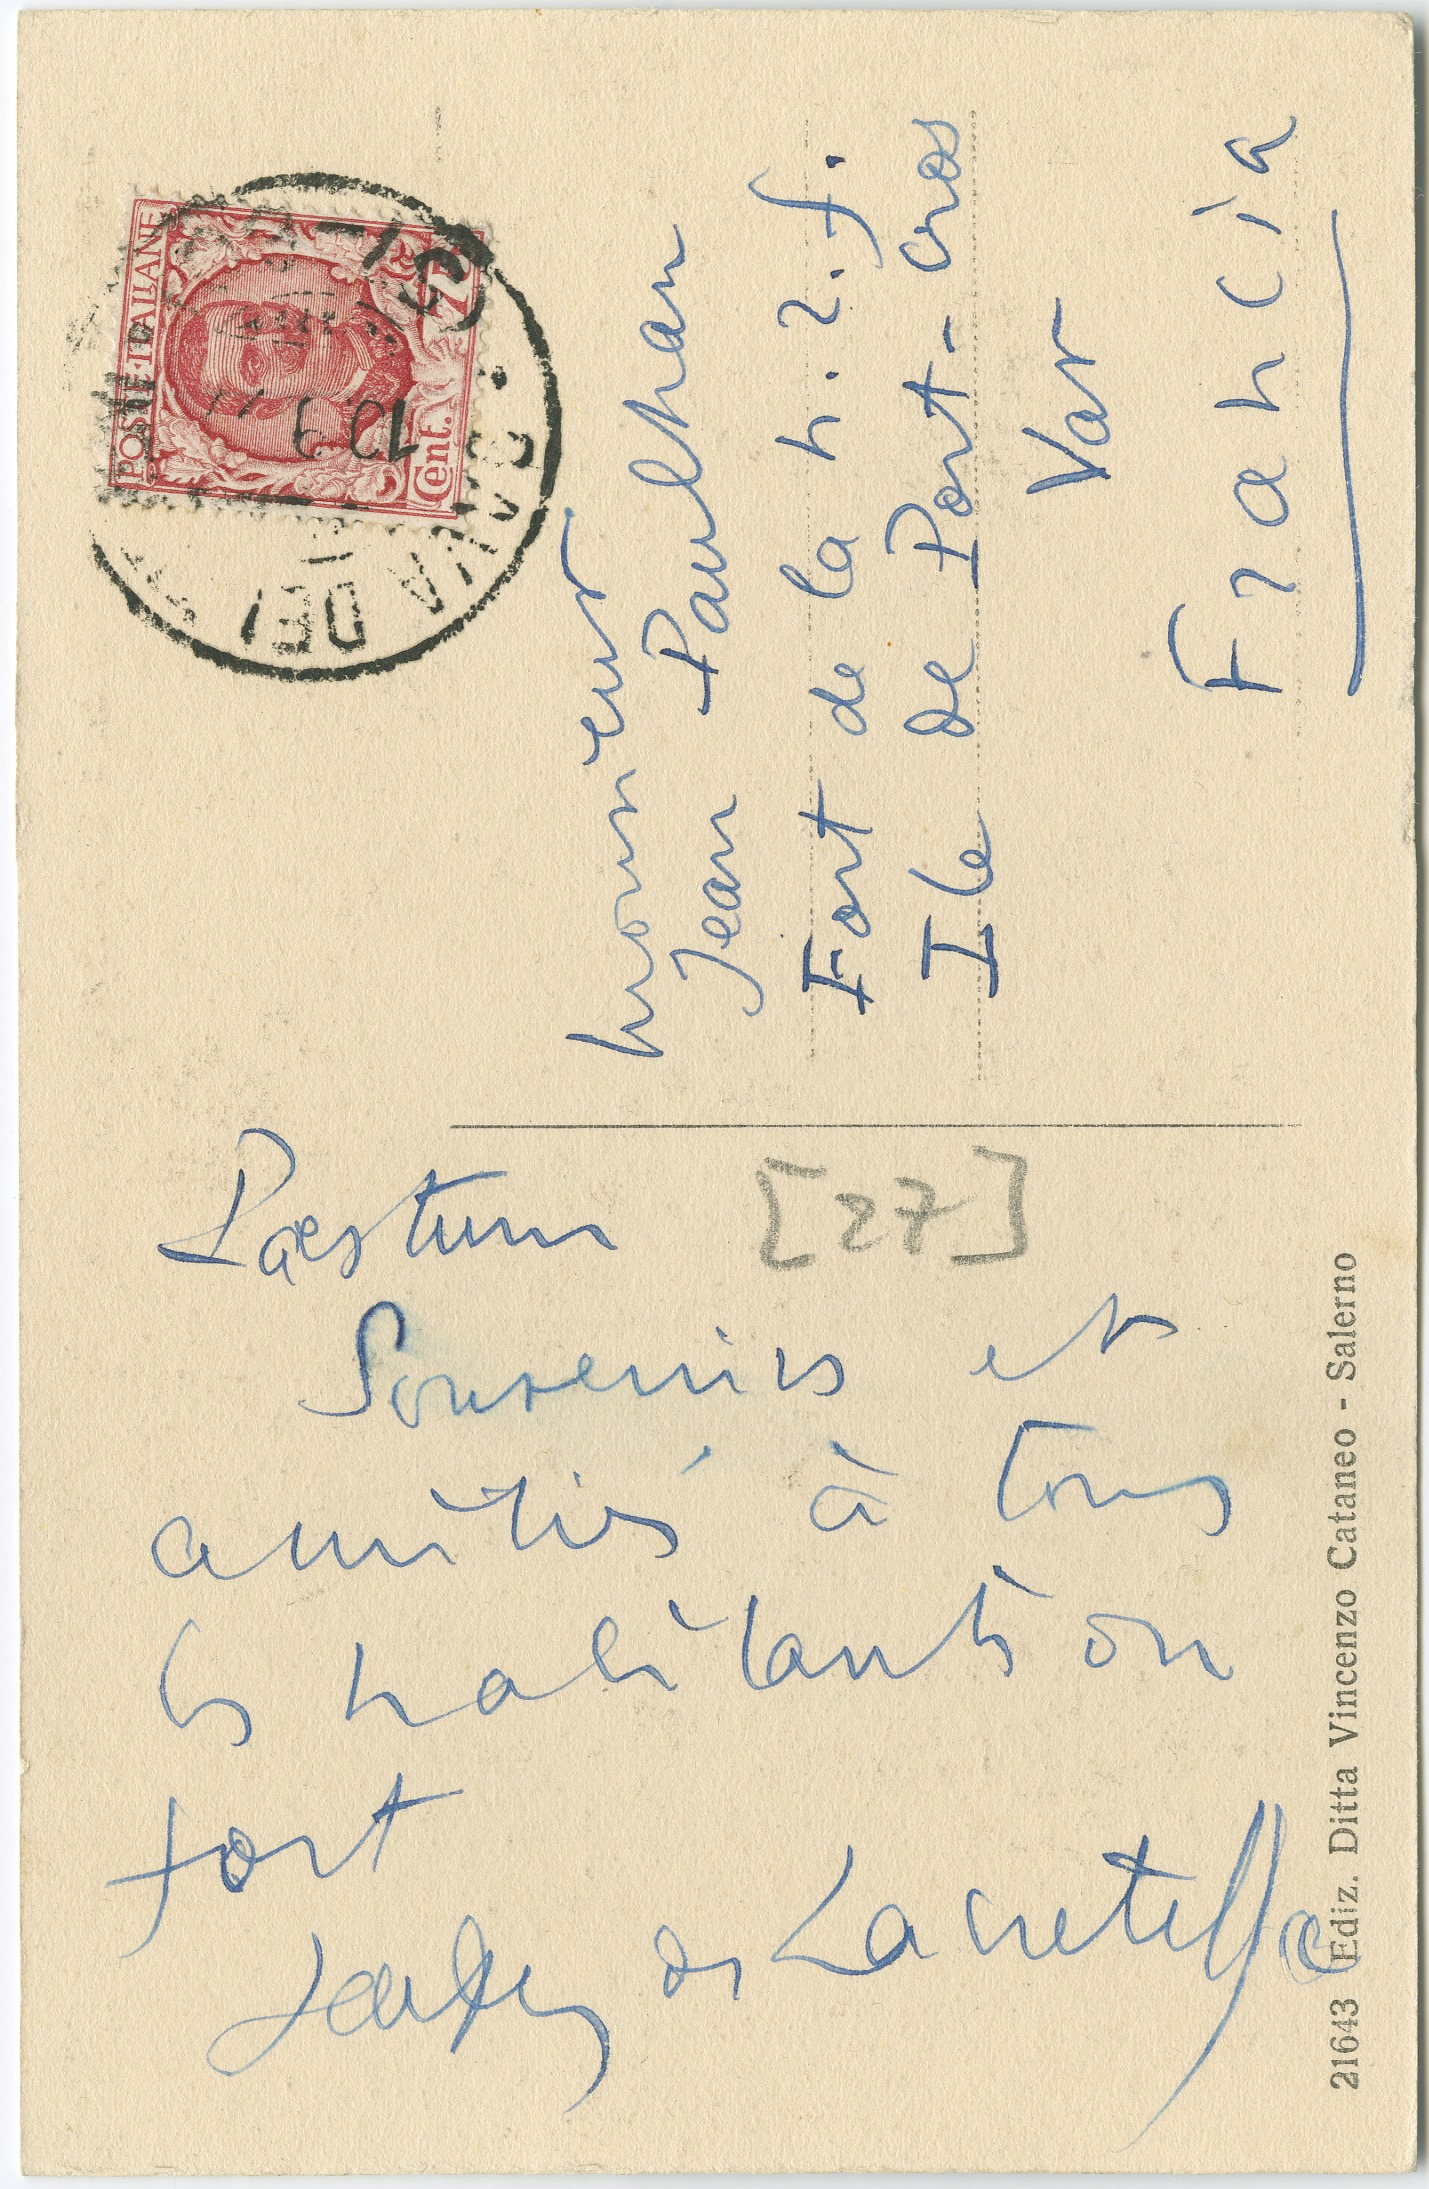 Paestum
[27]
Souvenirs et
amitiés à tous
les habitants du
fort
Jacques de Lacretelle
Monsieur
Jean Paulhan
Fort de la n.r.f.
Ile de Port-Cros
Var
Francia
POSTE ITALIANE
Cent. 75
10.9
DEI
21643 Ediz. Ditta Vincenzo Cataneo - Salerno